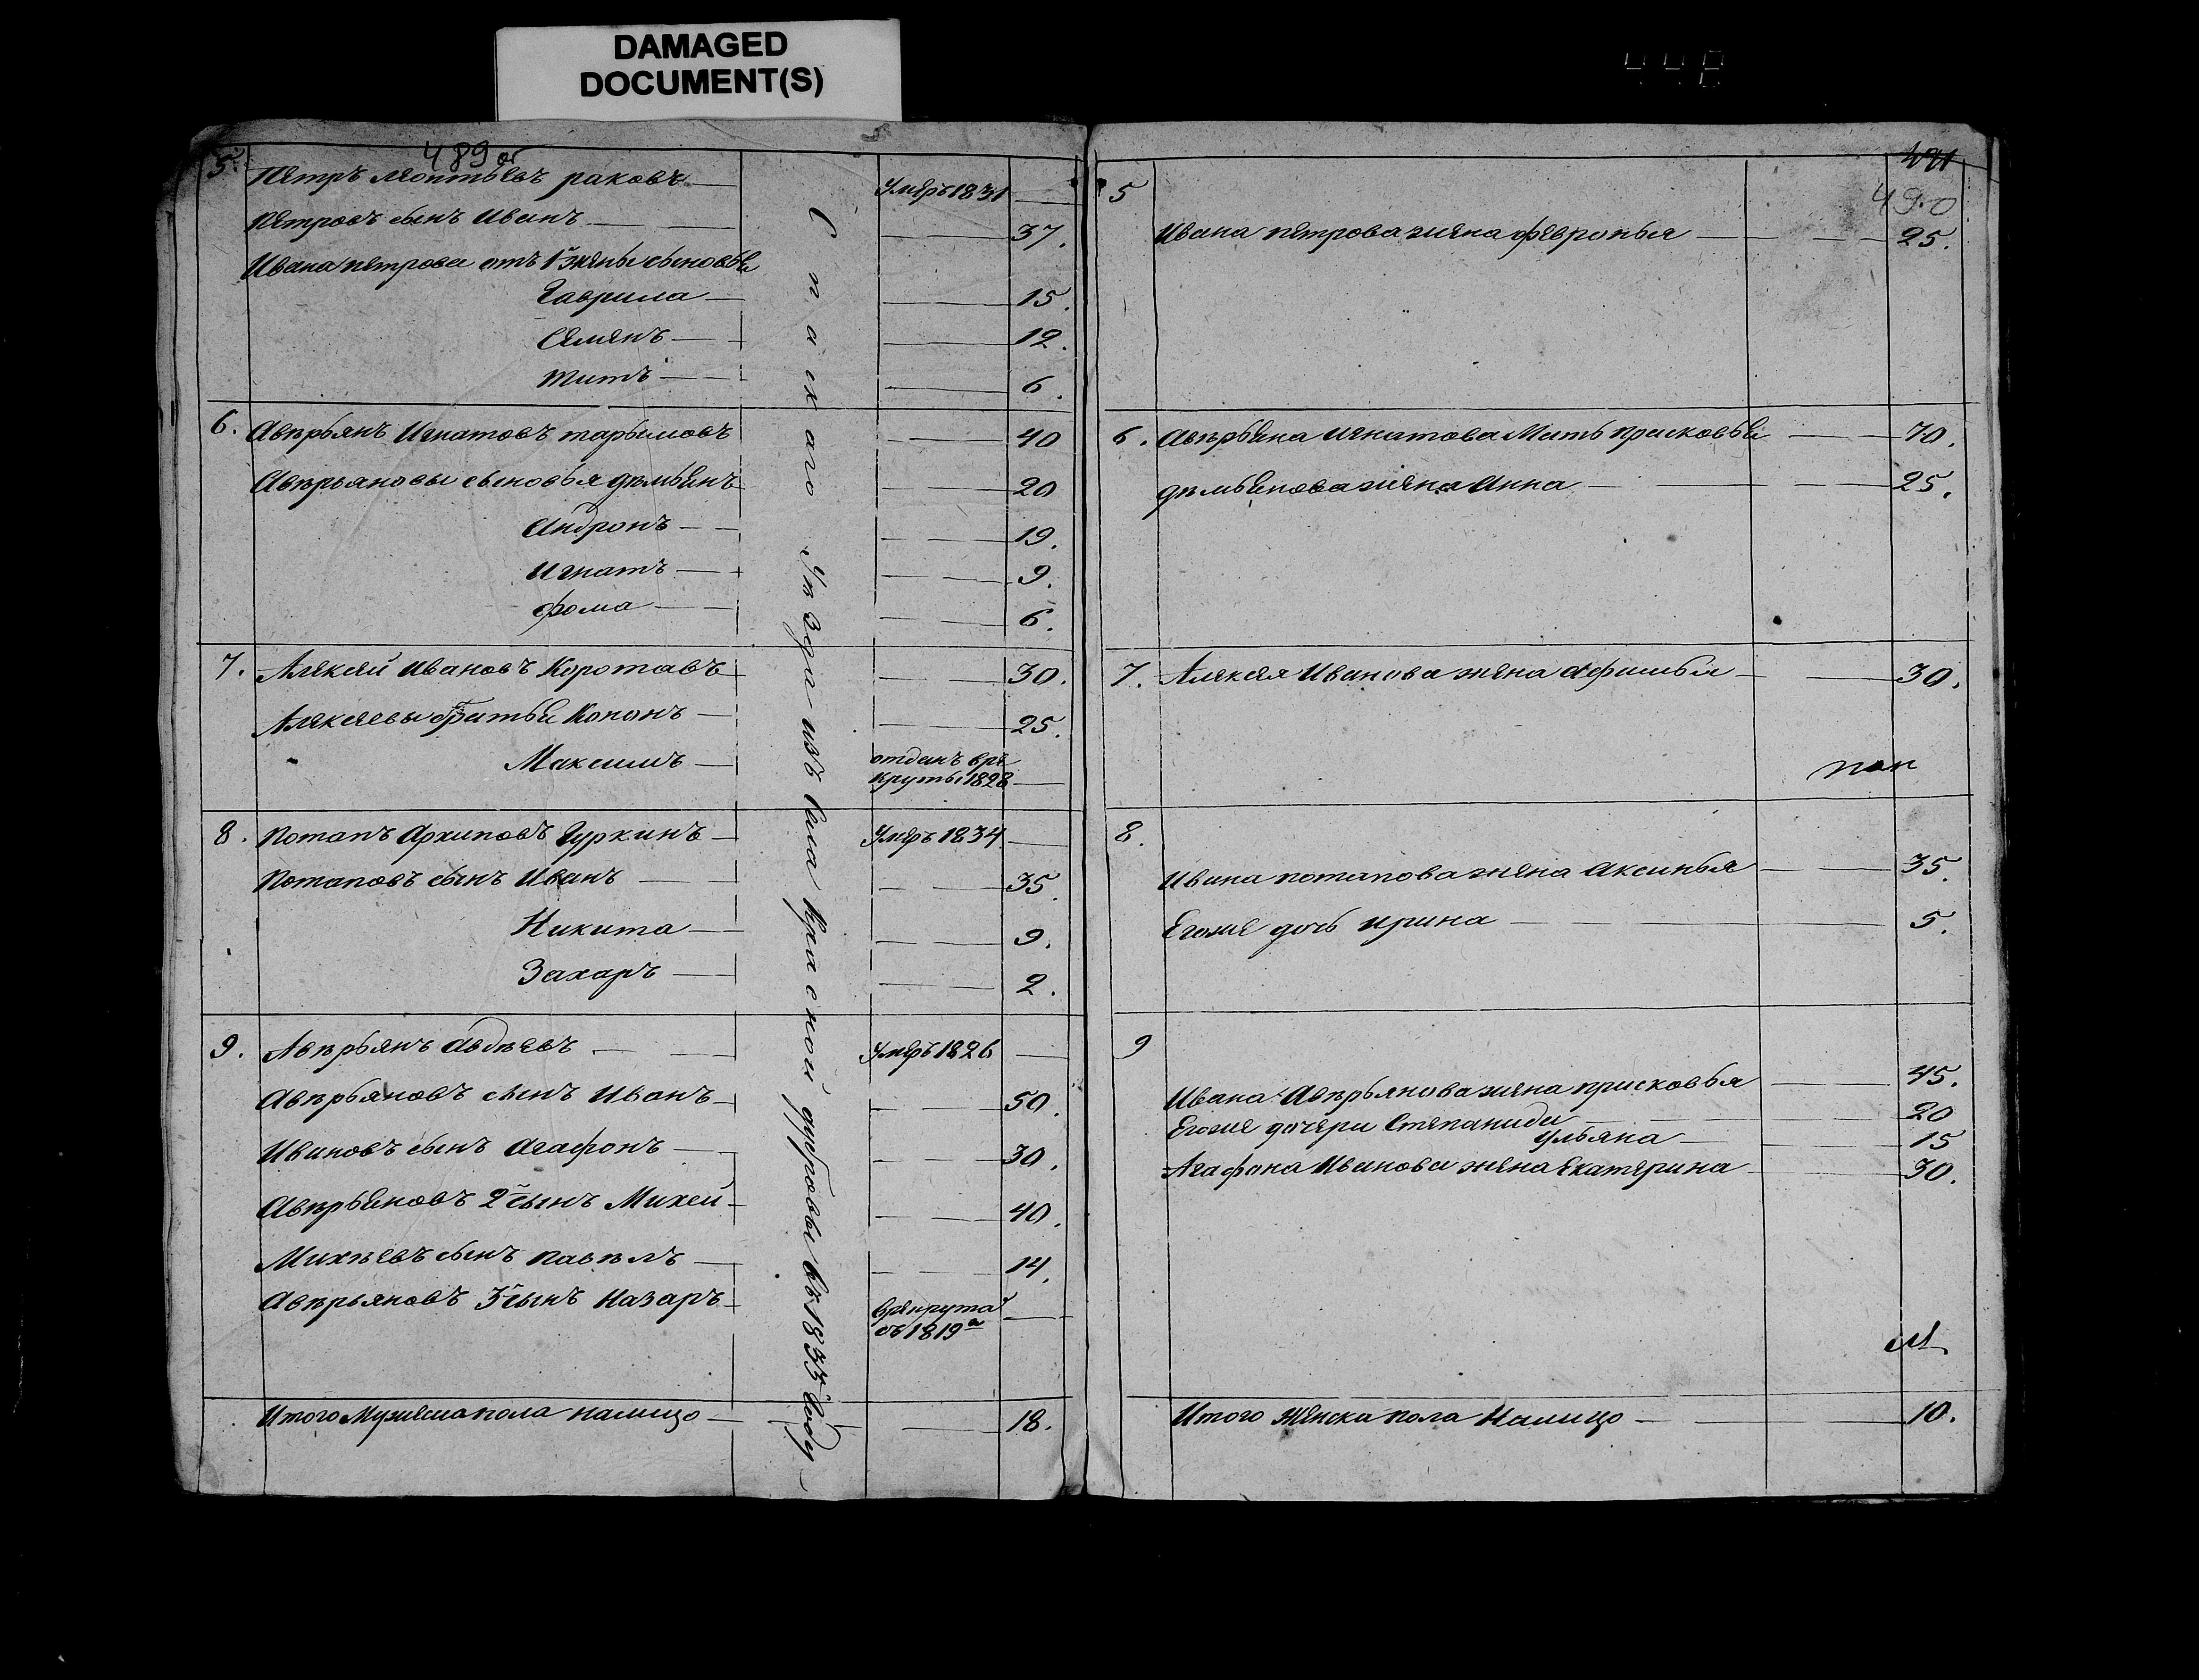 DAMAGED
DOCUMENT(S)
489 об
5. Петръ Леонтьевъ раковъ умеръ 1831
Петровъ сынъ Иванъ 37.
Ивана петрова отъ 1й жены сыновья
Гаврила 15.
Семенъ 12.
титъ 6.
6. Аверьянъ Игнатовъ 40
Аверьяновы сыновья 20
Андронъ 19.
Игнатъ 9.
фома 6.
7. Алексей Ивановъ Коротавъ 30.
Алексеевы братья Конанъ 25.
Максимъ отданъ вре
круты 1828
8. Потапъ Архиповъ Гуркинъ умеръ 1834
Потаповъ сынъ Иванъ 35.
Никита 9.
Захаръ 2.
9. Аверьянъ Авдеевъ умеръ 1826
Аверьяновъ сынъ Иванъ 50.
Ивановъ сынъ Агафонъ 30.
Аверьяновъ 2й сынъ Михей 40.
Михеевъ сынъ павелъ 14.
Аверьяновъ 3й сынъ Назаръ врекрута
съ 1819а
Итого Мужеска пола налицо 18.
Спаскаго уезда изъ села Красной дубровы въ 1833 году
491
490
5
Ивана петрова жена февронья 25.
6. Аверьяна игнатова Мать прасковья 70.
жена Анна 25.
7. Алексея Иванова жена Афимья 30.
8.
Ивана потапова жена Аксинья 35.
Егоже дочь ирина 5.
9
Ивана Аверьянова жена прасковья 45.
Егоже дочери Степанида 20
ульяна 15
Агафона Иванова жена Екатерина 30.
Итого Женска пола Налицо 10.